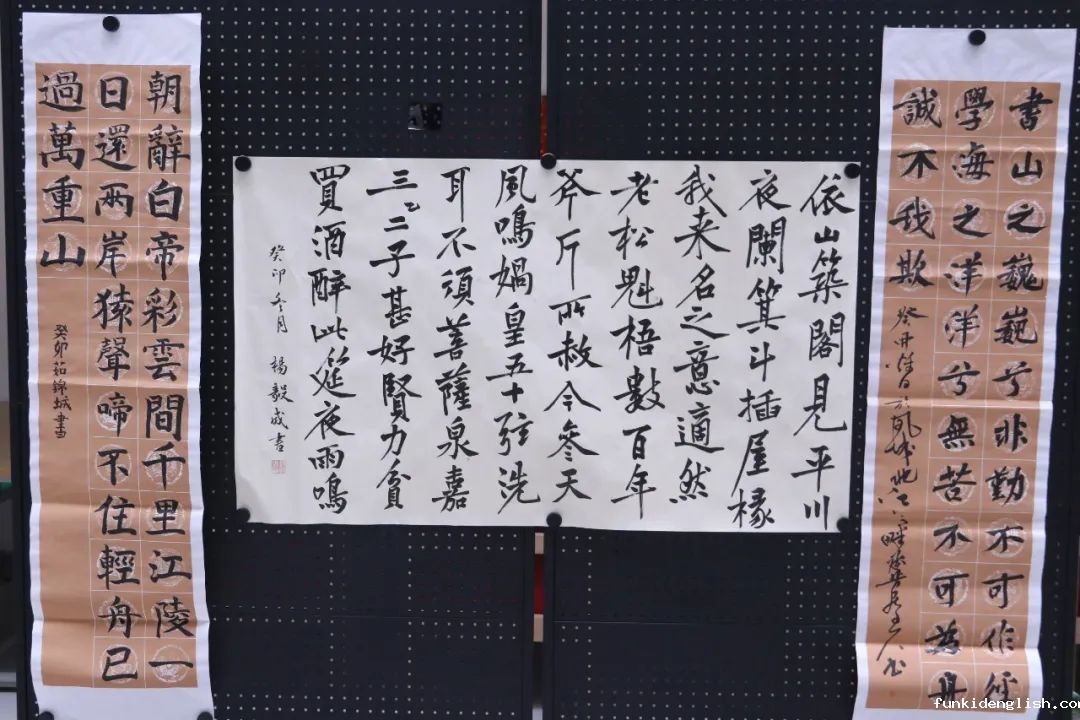 書山之巍巍兮非勤不可作徑
學海之洋洋兮無苦不可為舟
誠不我欺
癸卯
依山築閣見平川
夜闌箕斗插屋椽
我来名之意適然
老松魁梧數百年
斧斤所赦今參天
風鳴媧皇五十弦洗
耳不須菩薩泉嘉
三二子甚好賢力貧
買酒醉此筵夜雨鳴
癸卯冬月 楊毅成書
朝辭白帝彩雲間千里江陵一
日還兩岸猿聲啼不住輕舟已
過萬重山
癸卯茹錦城書
funkidenglish.com